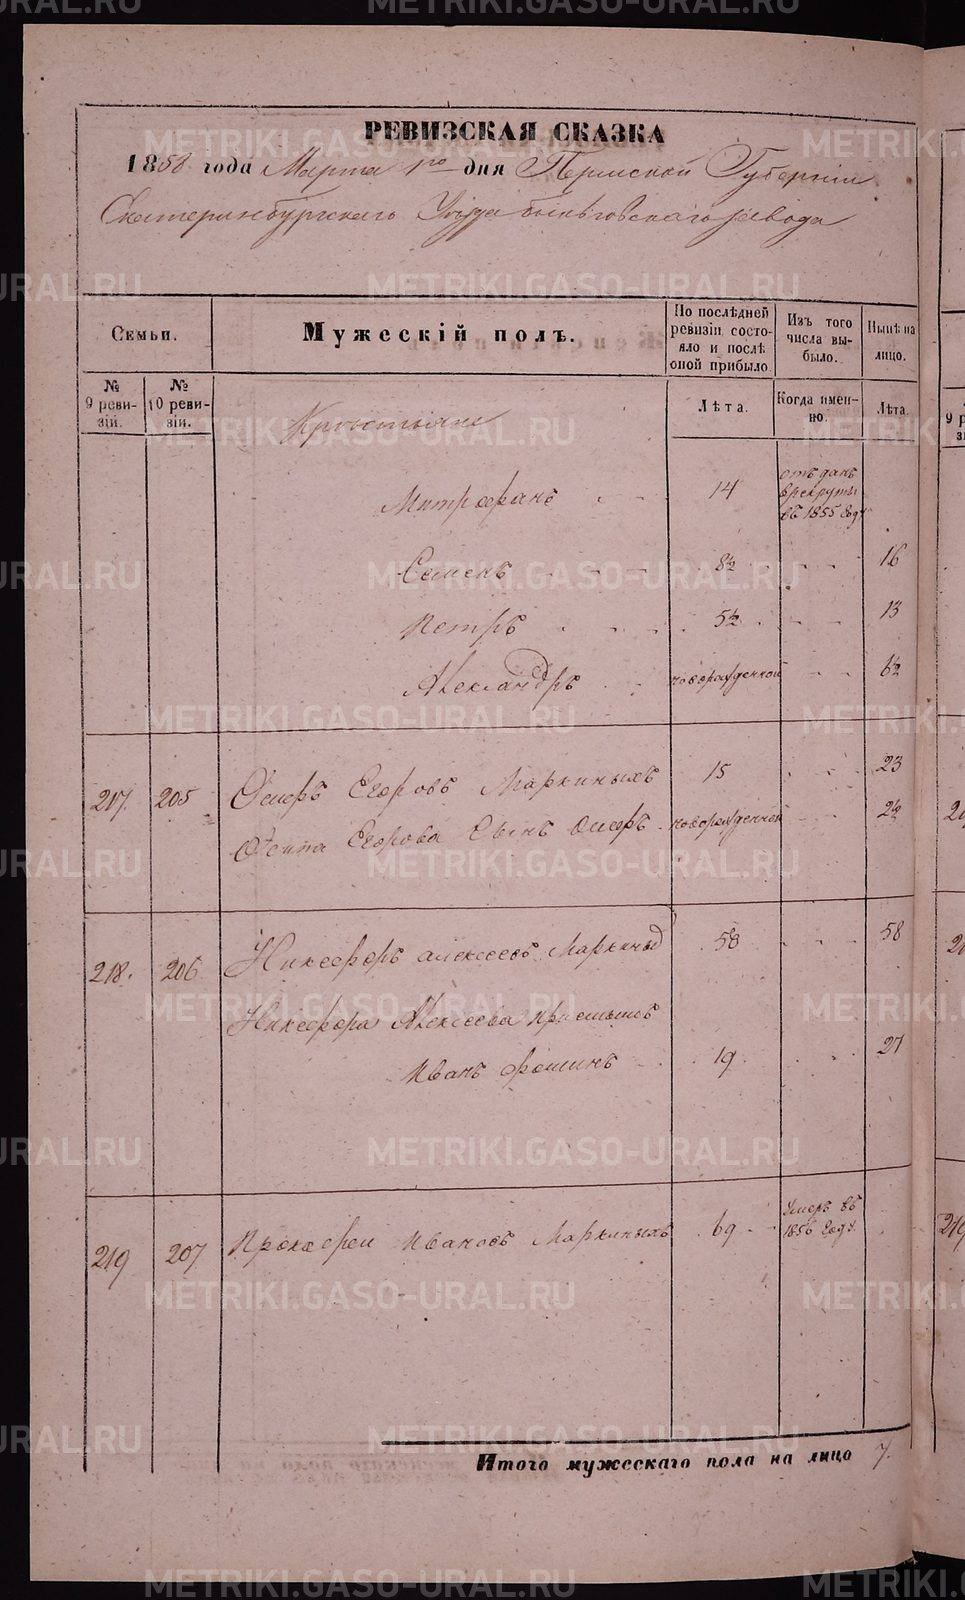 РЕВИЗСКАЯ СКАЗКА
1858 года Марта 1го дня Пермской Губерніи
Екатеринбургскаго Уѣзда Быньговскаго завода
Семьи.
Мужескій полъ.
По послѣдней ревизіи состояло и послѣ оной прибыло
Изъ того числа выбыло.
Нынѣ на лицо.
№ 9 ревизіи.
№ 10 ревизіи.
Лѣта.
Когда именно.
Лѣта.
Крестьяне
Митрофанъ 14 отъданъ врекруты въ 1855 году
Семенъ 8½ 16
Петръ 5½ 13
Александръ новорожденной 6½
217. 205 Егоровъ Маркиныхъ 15 23
Егорова Сынъ новорожденной 2½
218. 206 Никифоръ алексеевъ Маркиныхъ 58 58
Никифора Алексеева приемышъ
Иванъ фоминъ 19 27
219 207 Прокофеи Ивановъ Маркиныхъ 69 Умеръ въ 1856 году
Итого мужескаго пола на лицо 7.
METRIKI.GASO-URAL.RU